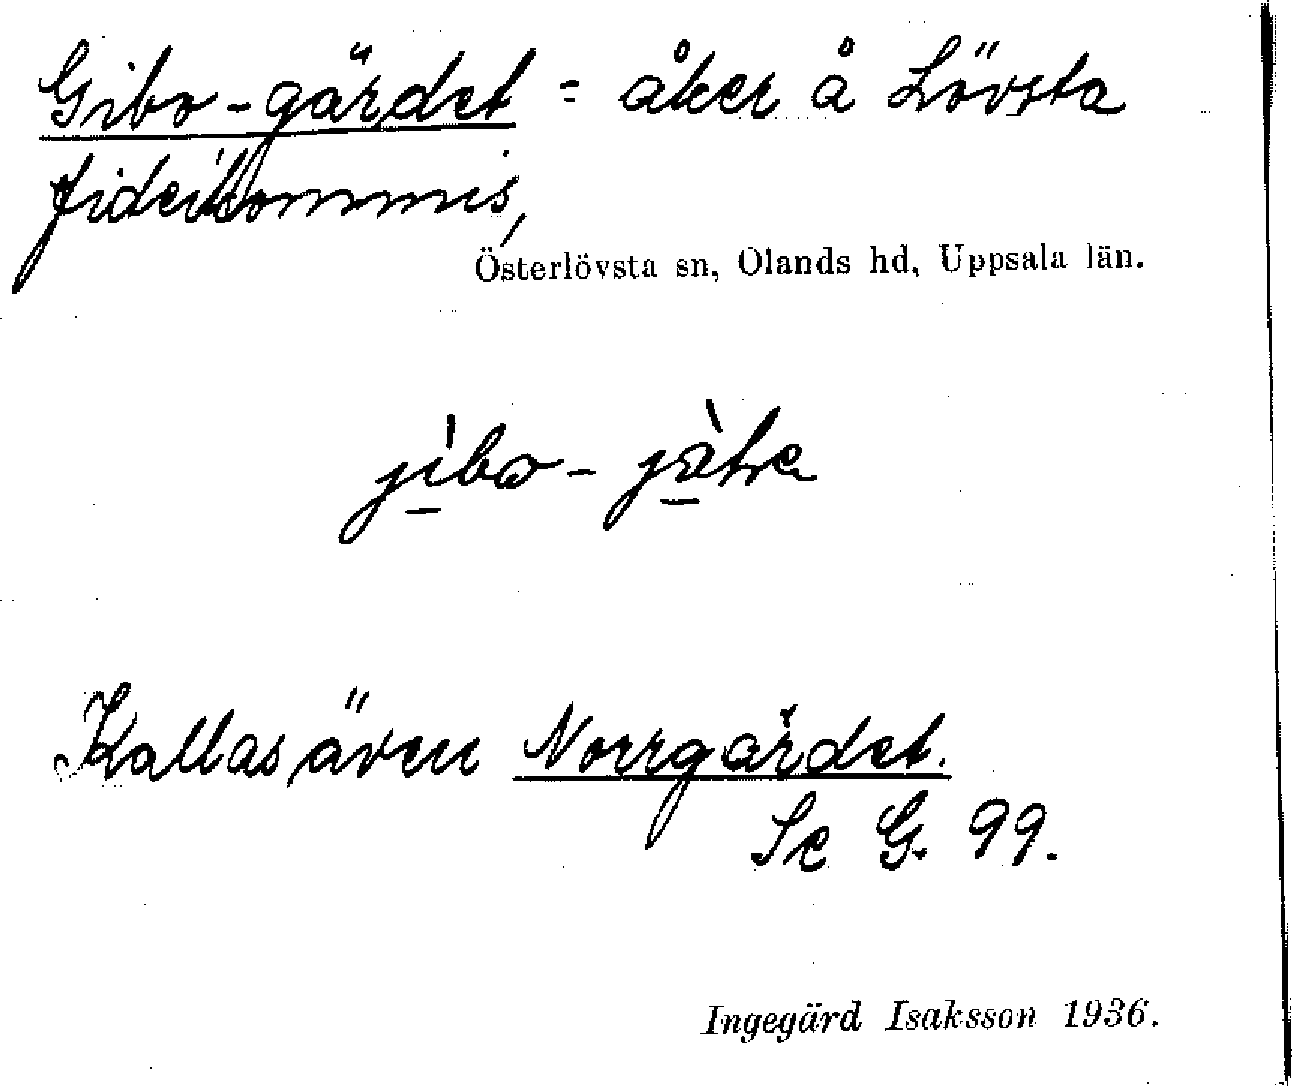 Gibo-gärdet = åker å Lövsta
fideikommis,
Österlövsta sn, Olands hd, Uppsala län.
Kallas även Norrgärdet.
Se G. 99.
Ingegärd Isaksson 1936.